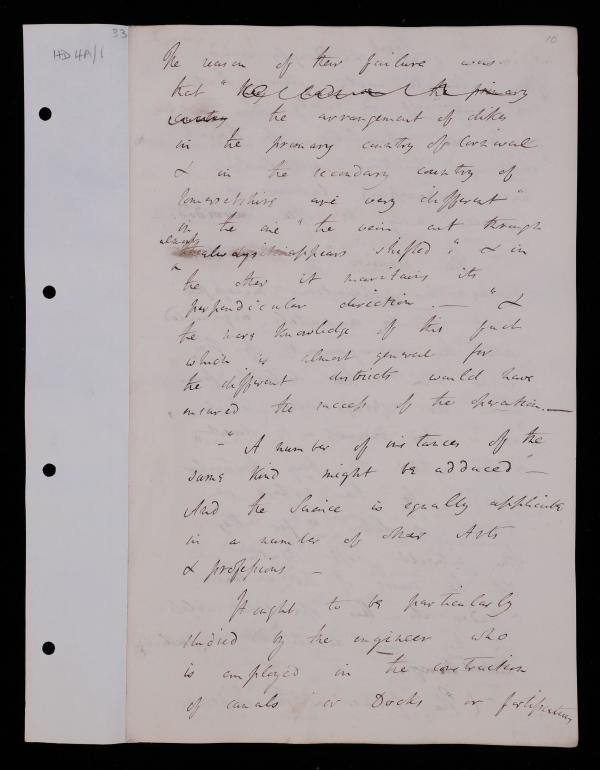 33
10
HD 4A/1
The reason of their failure was
that " the primary
country the arrangement of dikes
in the primary country of Cornwall
& in the secondary country of
Somersetshire are very different "
in the one " the vein cut through
always
appears shifted "; & in
the other it maintains its
perpendicular direction. — " &
the mere knowledge of this fact
which is almost general for
the different districts would have
ensured the success of the operation. —
— " A number of instances of the
same kind might be adduced " —
And the Science is equally applicable
in a number of other Arts
& professions —
It ought to be particularly
studied by the engineer who
is employed in the construction
of canals or Docks " or fortifications